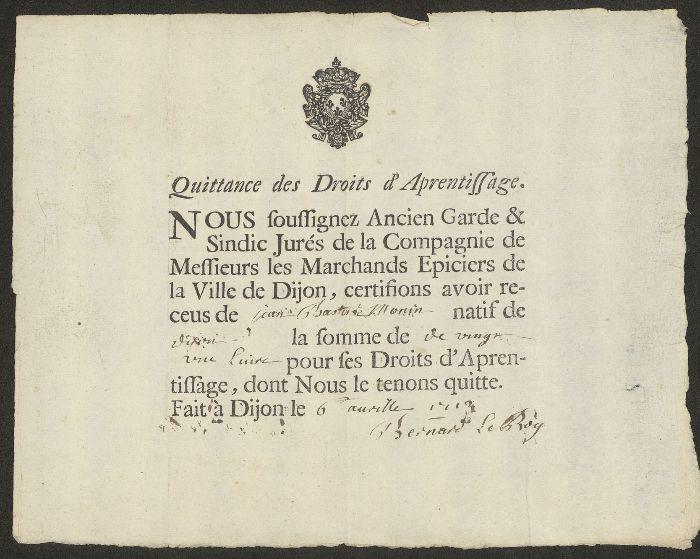 Quittance des Droits d'Aprentiſſage.
NOUS ſouſſignez Ancien Garde &
Sindic Jurés de la Compagnie de
Meſſieurs les Marchands Epiciers de
la Ville de Dijon, certifions avoir re-
ceus de jean natif de
la ſomme de de vingt
une livre pour ſes Droits d'Apren-
tiſſage, dont Nous le tenons quitte.
Fait à Dijon le 6 avrille
Bernard Le Roy